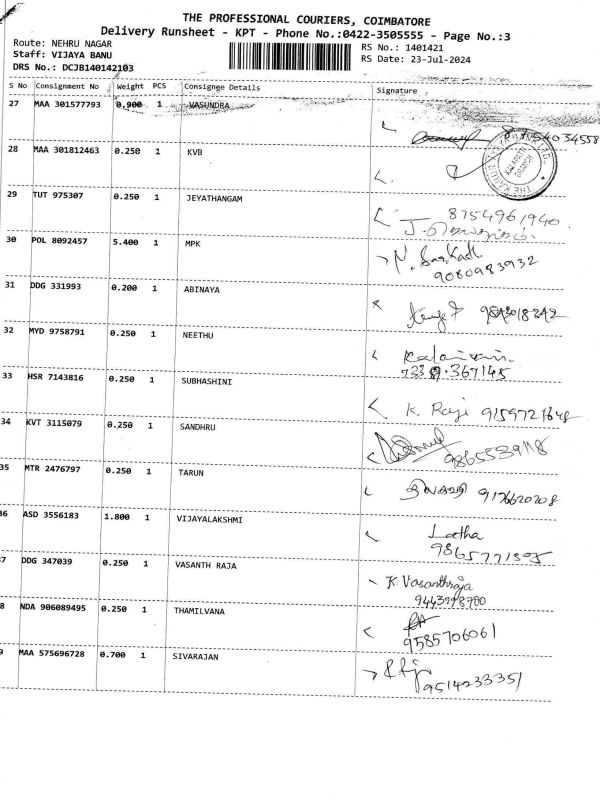 THE PROFESSIONAL COURIERS, COIMBATORE
Delivery Runsheet - KPT - Phone No.:0422-3505555 - Page No.:3
Route: NEHRU NAGAR
Staff: VIJAYA BANU
DRS No.: DCJB140142103
RS No.: 1401421
RS Date: 23-Jul-2024
S No Consignment No Weight PCS Consignee Details Signature
27 MAA 301577793 0.900 1 VASUNDRA
28 MAA 301812463 0.250 1 KVB
KALAPATTI BRANCH
29 TUT 975307 0.250 1 JEYATHANGAM
8754961940
30 POL 8092457 5.400 1 MPK
9080983932
31 DDG 331993 0.200 1 ABINAYA
32 MYD 9758791 0.250 1 NEETHU
33 HSR 7143816 0.250 1 SUBHASHINI
K. Raji
34 KVT 3115079 0.250 1 SANDHRU
35 MTR 2476797 0.250 1 TARUN
36 ASD 3556183 1.800 1 VIJAYALAKSHMI
Latha
37 DDG 347039 0.250 1 VASANTH RAJA
K. Vasanthraja
38 NDA 906089495 0.250 1 THAMILVANA
9585706061
39 MAA 575696728 0.700 1 SIVARAJAN
9514233351